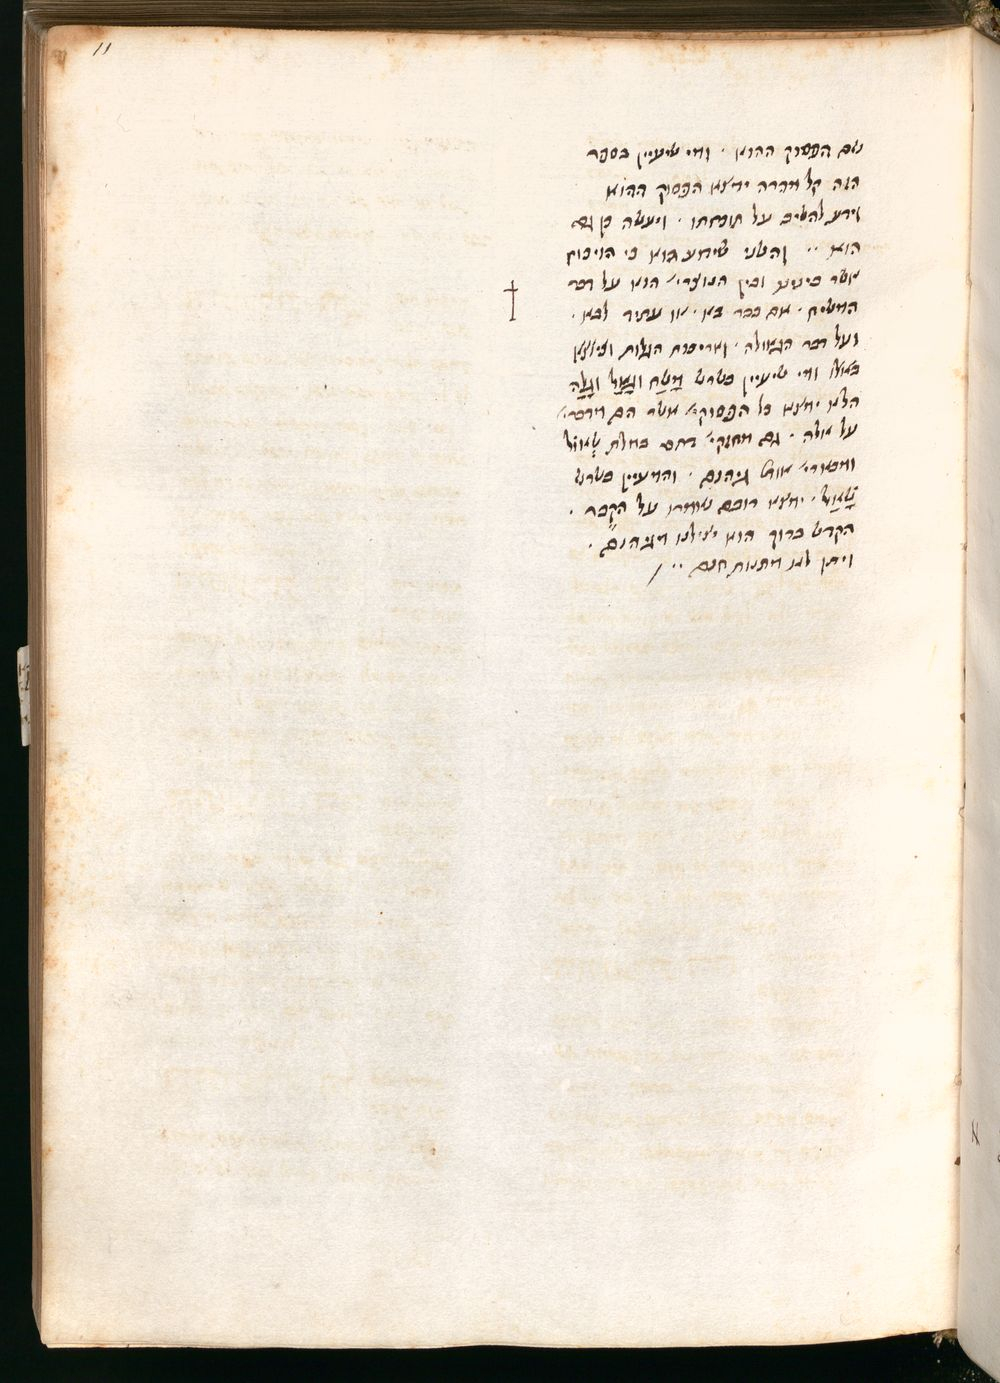 11
שם הפסוק ההוא · ומי שיעיין בספר
הזה קל מהרה ימצא הפסוק ההוא
וידע להשיב על תוכחתו · ויעשה כן גם
הוא ·· והשני שידוע הוא כי הויכוח
אשר בינינו ובין הנוצרי׳ הוא על דבר
המשיח · אם כבר בא · או עתיד לבא ·
ועל דבר הגאולה · ואריכות הגלות וכיוצא
באלו ומי שיעיין בשרש מָשַׁח וגָאַל וגָלָה
הלא ימצא כל הפסוקי׳ אשר הם מדברי׳
על אלה · גם חולקי׳ במלת שְׁאוֹל
ומבארי׳ אותו גיהנם · והמעיין בשרש
שָׁאַל · ימצא רובם נאמרו על הקבר ·
הקדוש ברוך הוא יצילנו מגיהנם ·
ויתן לנו מתנות חנם ··